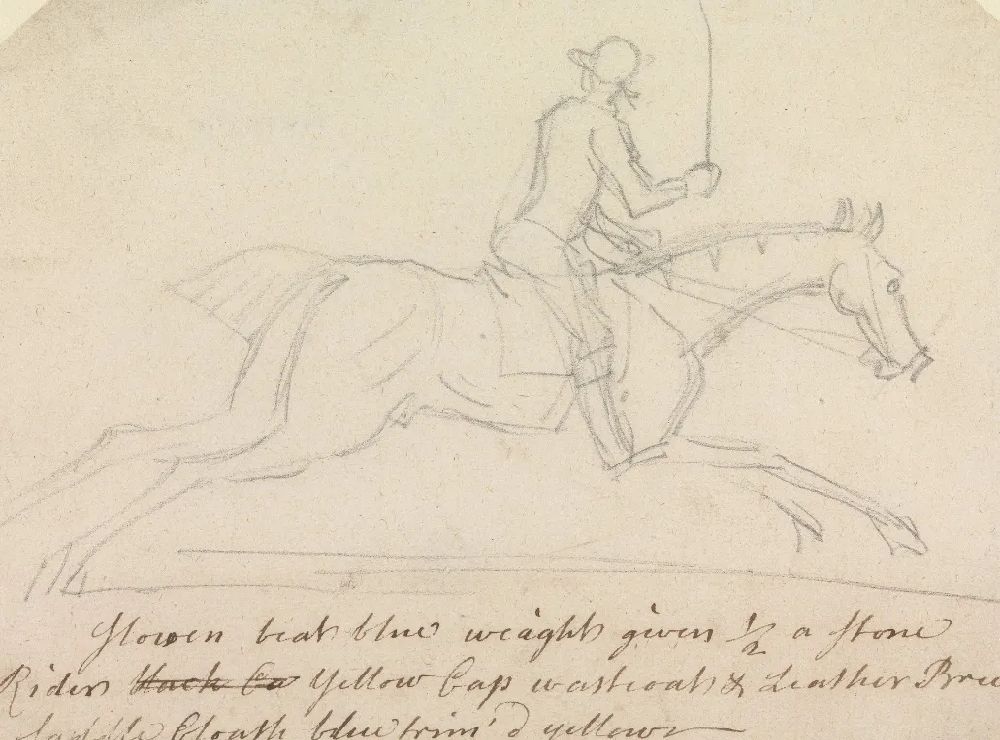 beat blue weaght given 1/2 a stone
Rider Black Ca Yellow Cap wastcoat & Leather Bree
saddle Cloath blue trim'd yellow